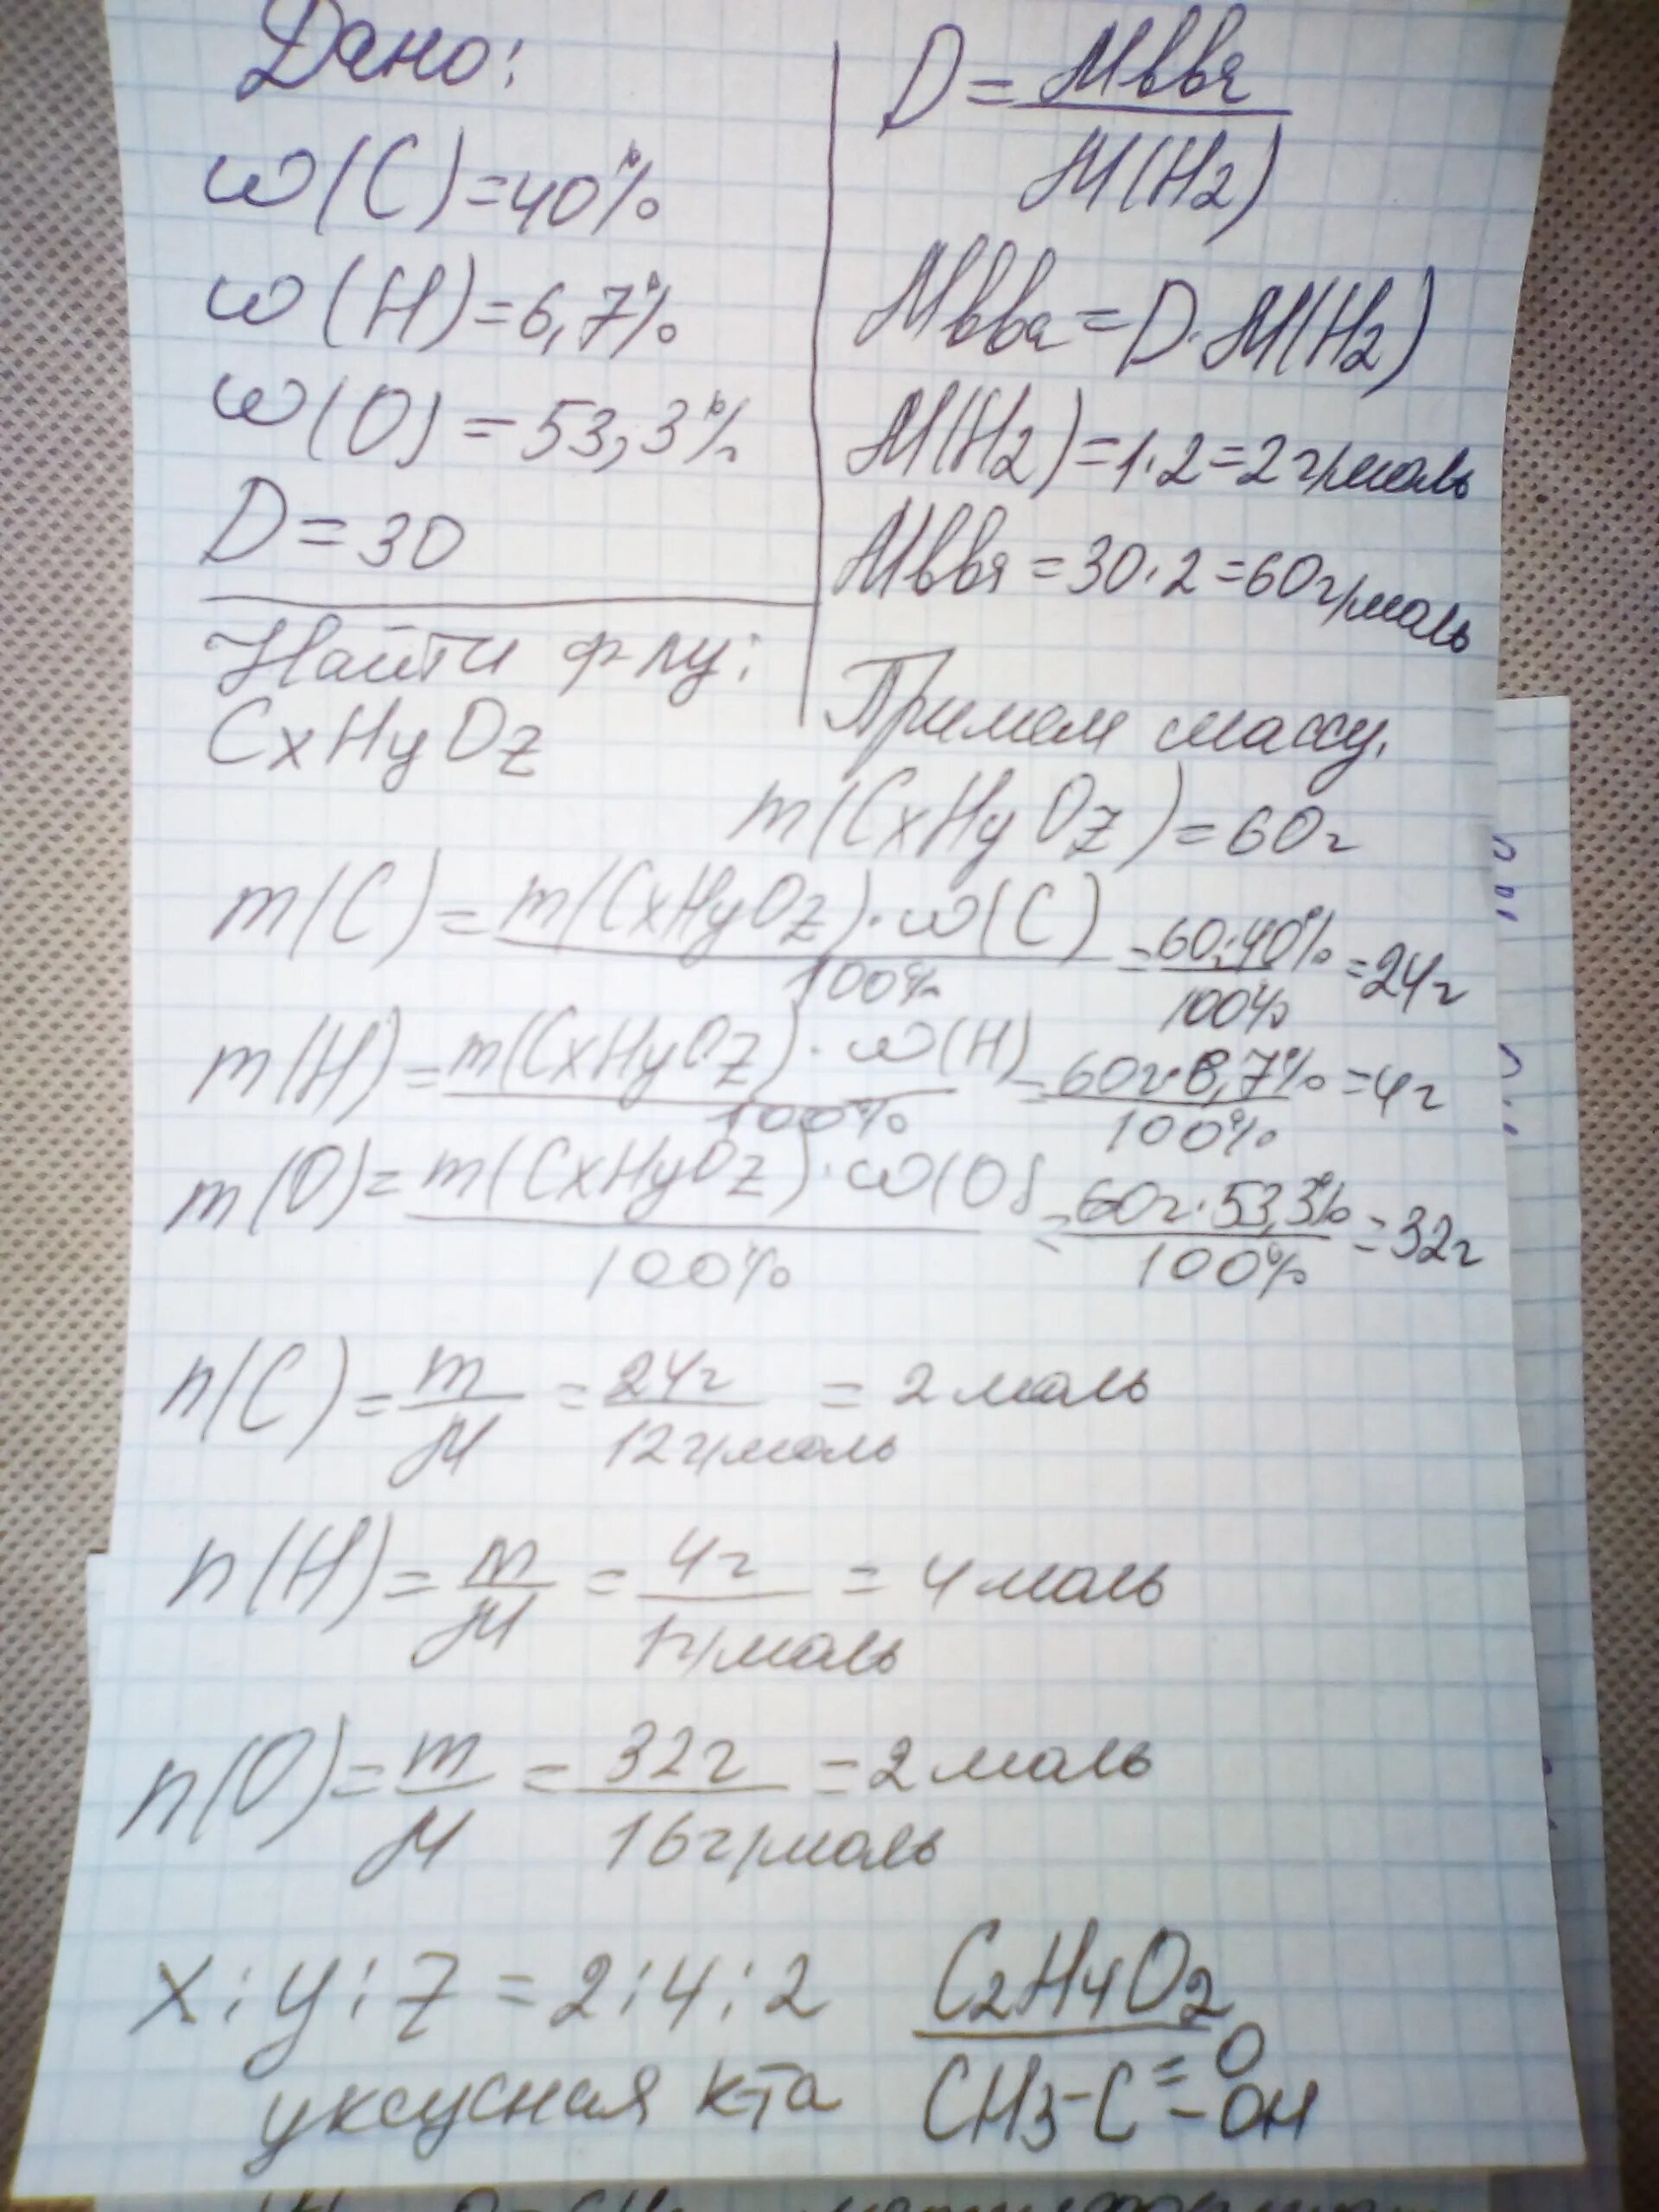 Дано:
ω(C)=40%
ω(H)=6,7%
ω(O)=53,3%
D=30
Найти ф-лу:
CxHyOz
D=Mвва/M(H2)
Mвва=D·M(H2)
M(H2)=1·2=2г/моль
Mвва=30·2=60г/моль
Примем массу.
m(CxHyOz)=60г
m(C)=m(CxHyOz)·ω(C)/100%=60·40%/100%=24г
m(H)=m(CxHyOz)·ω(H)/100%=60г·6,7%/100%=4г
m(O)=m(CxHyOz)·ω(O)/100%=60г·53,3%/100%=32г
n(C)=m/M=24г/12г/моль=2моль
n(H)=m/M=4г/1г/моль=4моль
n(O)=m/M=32г/16г/моль=2моль
x:y:z=2:4:2 C2H4O2
уксусная к-та CH3-C=O-OH